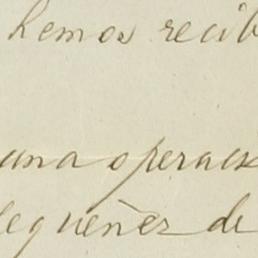 hemos recib
una operaci
pequeñez de